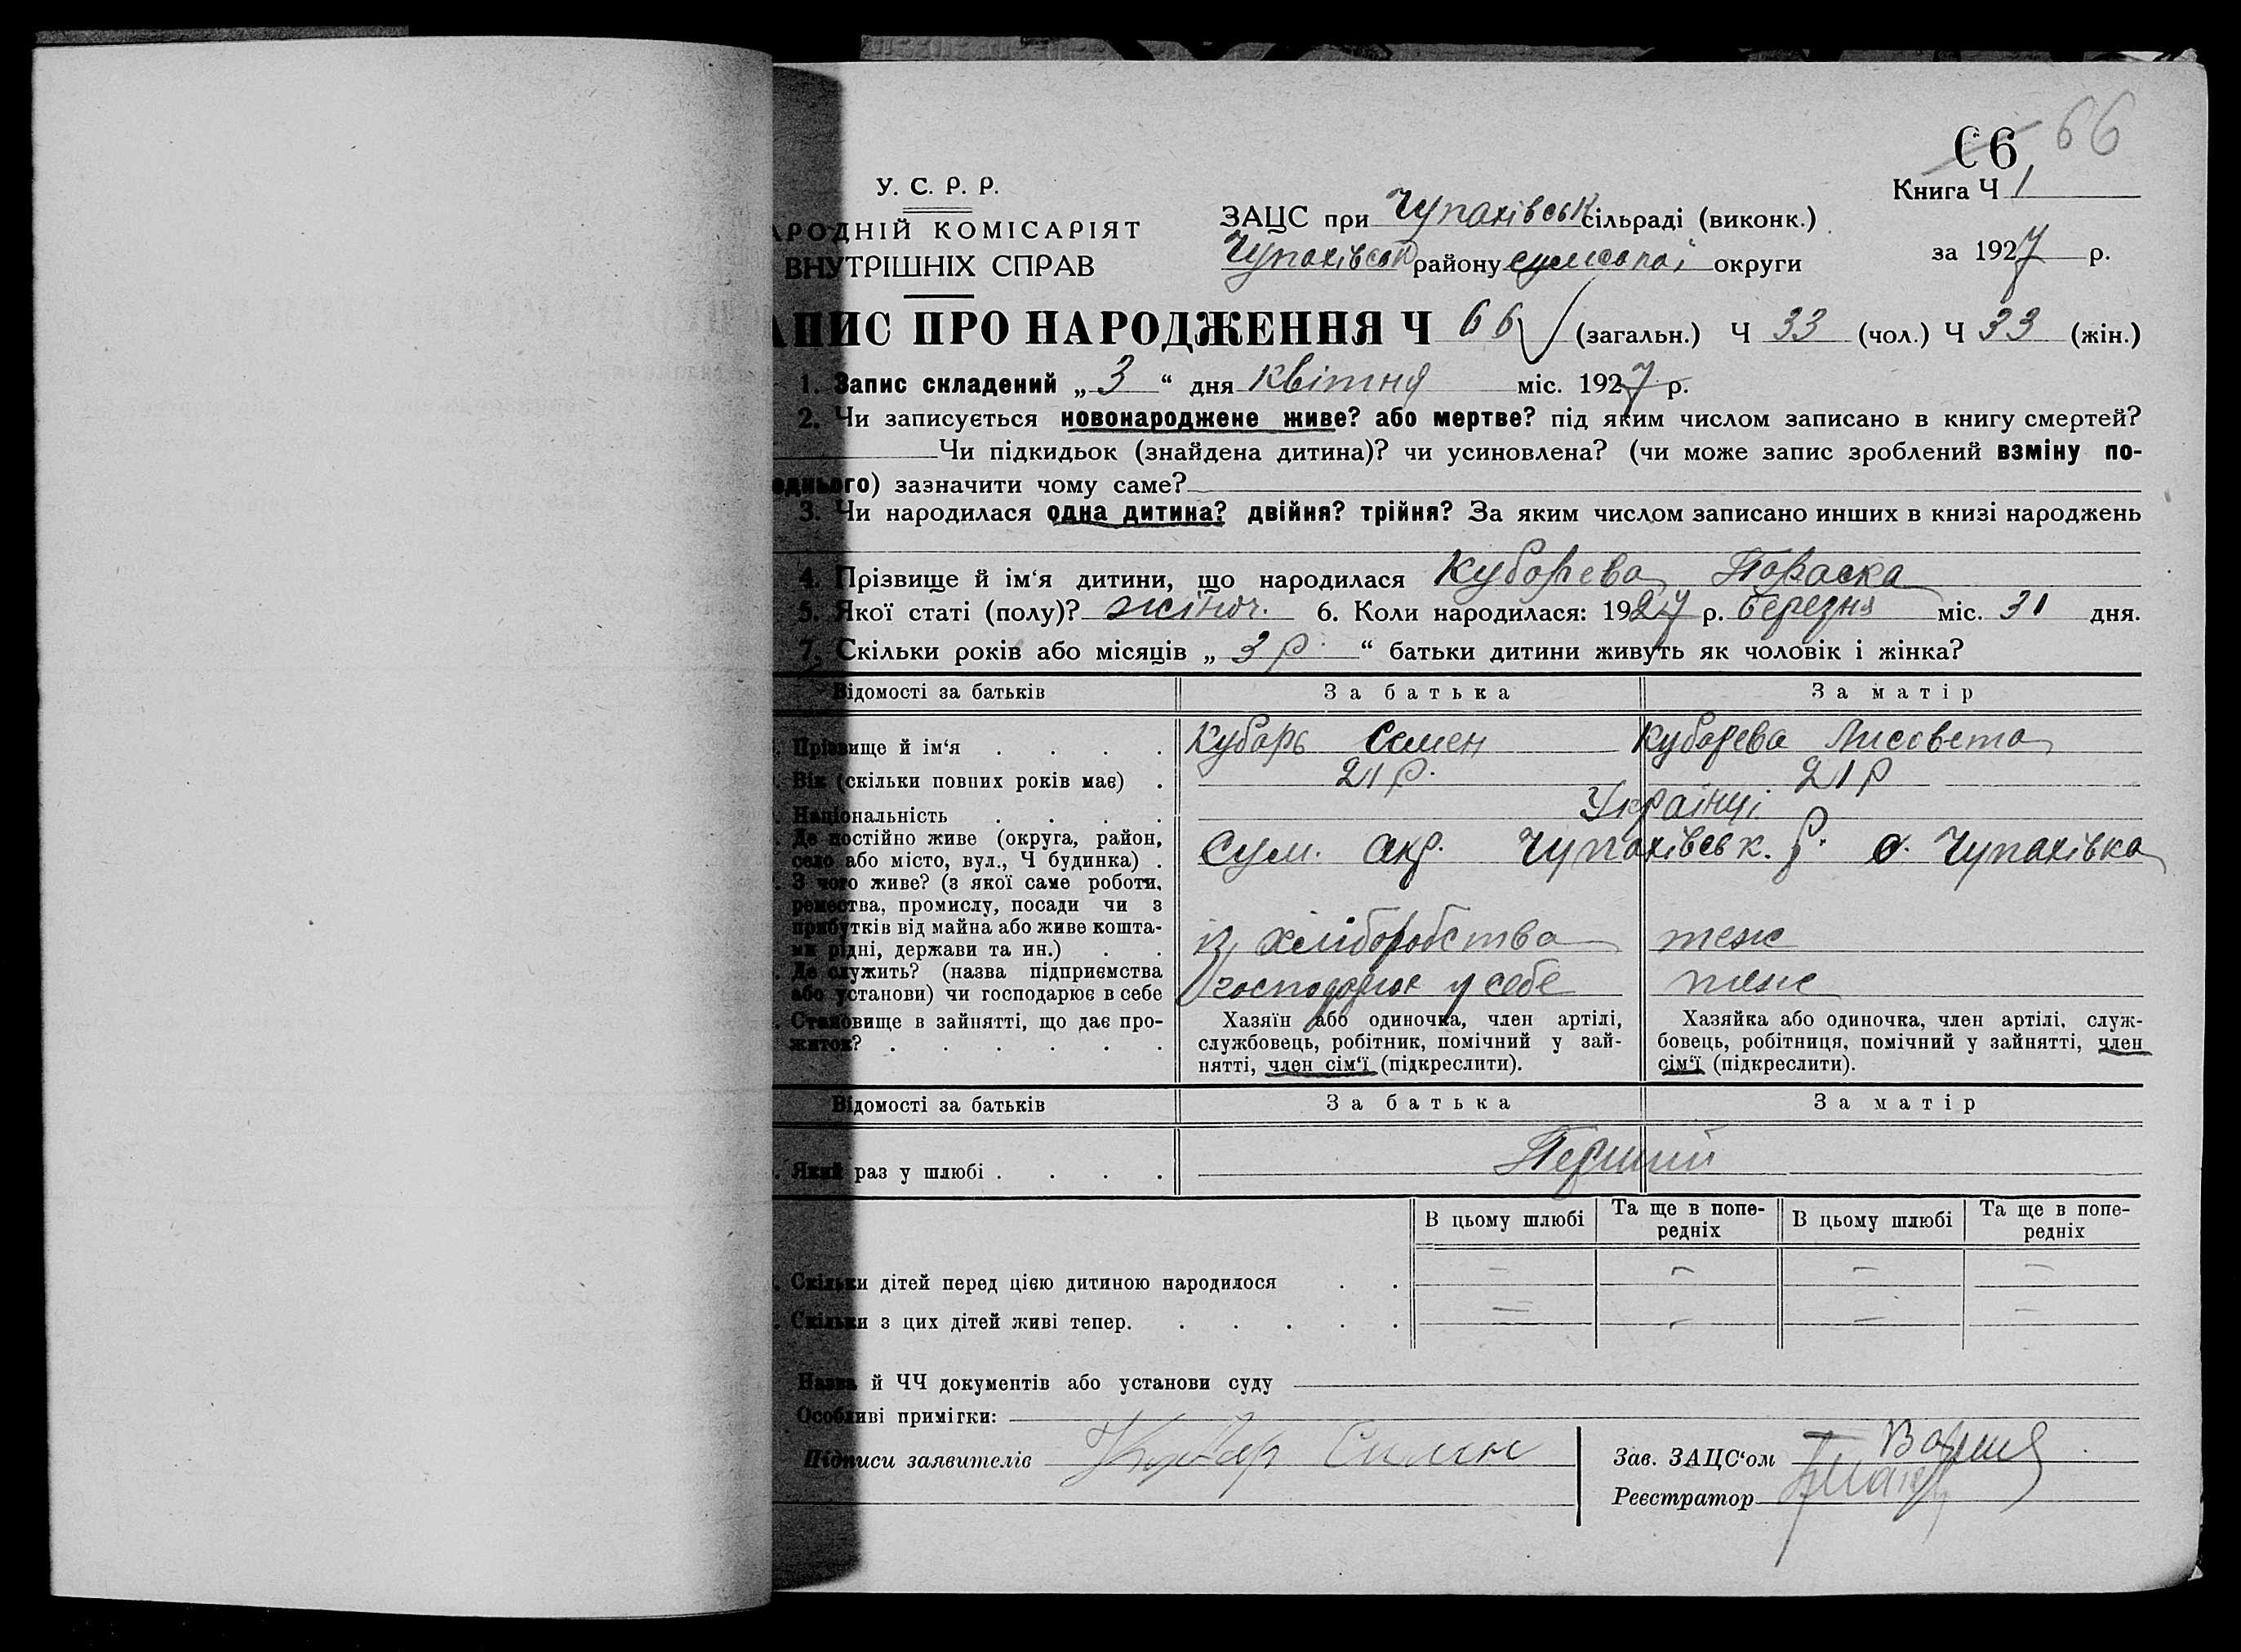 66 66
Книга Ч 1
У. С. Р. Р.
РОДНІЙ КОМІСАРІЯТ
ВНУТРІШНІХ СПРАВ
ЗАЦС при Чупахівськ сільраді (виконк.)
Чупахівськ району сумської округи
за 1927 р.
АПИС ПРО НАРОДЖЕННЯ Ч 66 (загальн.) Ч 33 (чол.) Ч 33 (жін.)
1. Запис складений „ 3 “ дня квітня міс. 1927 р.
2. Чи записується новонароджене живе? або мертве? під яким числом записано в книгу смертей?
Чи підкидьок (знайдена дитина)? чи усиновлена? (чи може запис зроблений взміну по-
еднього) зазначити чому саме?
3. Чи народилася одна дитина? двійня? трійня? За яким числом записано инших в книзі народжень
4. Прізвище й ім‘я дитини, що народилася Кубарева Параска
5. Якої статі (полу)? жіноч. 6. Коли народилася: 1927 р. березня міс. 31 дня.
7. Скільки років або місяців „ 3 р. “ батьки дитини живуть як чоловік і жінка?
Відомості за батьків За батька За матір
Прізвище й ім‘я Кубарь Семен Кубарева Лисовета
Вік (скільки повних років має) 21 р. 21 р
Національність Українці
Де постійно живе (округа, район,
село або місто, вул., Ч будинка) Сум. окр. Чупахівськ. р. с. Чупахівка
З чого живе? (з якої саме роботи,
ремества, промислу, посади чи з
прибутків від майна або живе кошта-
ми рідні, держави та ин.) із хліборобства теж
Де служить? (назва підприємства
або установи) чи господарює в себе господарює у себе теж
Становище в зайнятті, що дає про-
житок?
Хазяїн або одиночка, член артілі,
службовець, робітник, помічний у зай-
нятті, член сім‘ї (підкреслити).
Хазяйка або одиночка, член артілі, служ-
бовець, робітниця, помічний у зайнятті, член
сім‘ї (підкреслити).
Відомості за батьків За батька За матір
Який раз у шлюбі Перший
В цьому шлюбі Та ще в попе-
редніх В цьому шлюбі Та ще в попе-
редніх
Скільки дітей перед цією дитиною народилося — — — —
Скільки з цих дітей живі тепер. — — — —
Назва й ЧЧ документів або установи суду
Особливі примітки:
Підписи заявителів Кубар Семен
Зав. ЗАЦС‘ом
Реєстратор